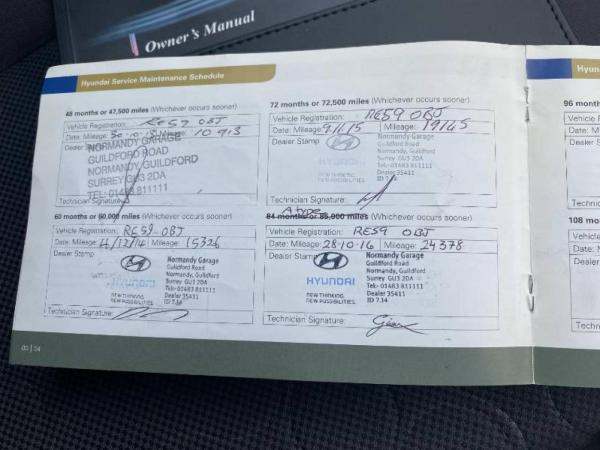 Owner's Manual
Hyundai Service Maintenance Schedule
48 months or 47,500 miles (Whichever occurs sooner)
Vehicle Registration: RE59 OBJ
Date: Mileage: Mileage: 10 913
Dealer
NORMANDY GARAGE
GUILDFORD ROAD
NORMANDY, GUILDFORD
SURREY GU3 2DA
TEL: 01483 811111
Technician Signature:
60 months or 60,000 miles (Whichever occurs sooner)
Vehicle Registration: RE59 OBJ
Date: Mileage: 4/12/14 Mileage: 15326
Dealer Stamp
Normandy Garage
Guildford Road
Normandy, Guildford
Surrey GU3 2DA
Tel:- 01483 811111
Dealer 35411
ID 7.14
HYUNDAI
NEW THINKING.
NEW POSSIBILITIES.
Technician Signature:
00 | 54
72 months or 72,500 miles (Whichever occurs sooner)
Vehicle Registration: RE59 OBJ
Date: Mileage: Mileage: 19145
Dealer Stamp
Normandy Garage
Guildford Road
Normandy, Guildford
Surrey GU3 2DA
Tel:- 01483 811111
Dealer 35411
HYUNDAI
NEW THINKING.
NEW POSSIBILITIES.
Technician Signature:
84 months or 85,000 miles (Whichever occurs sooner)
Vehicle Registration: RE59 OBJ
Date: Mileage: 28-10-16 Mileage: 24378
Dealer Stamp
Normandy Garage
Guildford Road
Normandy, Guildford
Surrey GU3 2DA
Tel:- 01483 811111
Dealer 35411
ID 7.14
HYUNDAI
NEW THINKING.
NEW POSSIBILITIES.
Technician Signature:
Hyun
96 month
Vehicle
Date: M
Dealer S
Technic
108 mon
Vehicle
Date:
Dealer
Techni